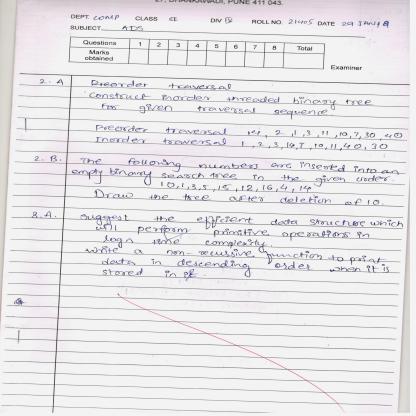 27, DHANKAWADI, PUNE 411 043.
DEPT. COMP CLASS CE DIV ROLL NO. 21405 DATE 29 JAN
SUBJECT ADS
Questions 1 2 3 4 5 6 7 8 Total
Marks obtained
Examiner
2. A Preorder traversal
Construct inorder threaded binary tree
for given traversal sequence
Preorder traversal 14, 2, 1, 3, 11, 10, 7, 30, 40
Inorder traversal 1, 2, 3, 14, 7, 10, 11, 40, 30
2. B. The following numbers are inserted into an
empty binary search tree in the given order.
10, 1, 3, 5, 15, 12, 16, 4, 14
Draw the tree after deletion of 10.
3. A. suggest the efficient data structure which
will perform primitive operations in
logn time complexity.
write a non-recursive function to print
data in descending order when it is
stored in